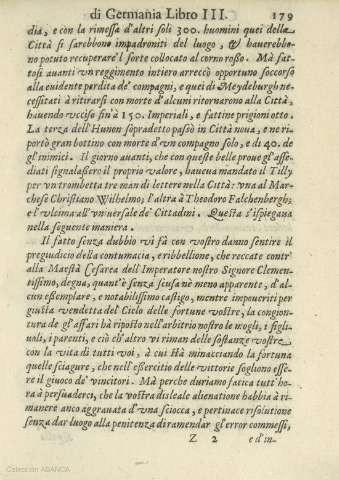 di Germania Libro III. 179
dia, e con la rimessa d'altri soli 300. huomini quei della
Città si sarebbono impadroniti del luogo, & hauerebbe-
no potuto recuperare'l forte collocato al corno roßo. Mà fat-
tosi auanti vn reggimento intiero arreccò opportuno soccorso
alla euidente perdita de' compagni, e quei di Meydeburgh ne-
cessitati à ritirarsi con morte d'alcuni ritornarono alla Città,
hauendo vcciso fin à 150. Imperiali, e fattine prigioni otto.
La terza dell'Hunen sopradetto passò in Città noua, e ne ri-
portò gran bottino con morte d'vn compagno solo, e di 40. de
gl'inimici. Il giorno auanti, che con queste belle proue gl'asse-
diati signalassero il proprio valore, haueua mandato il Tilly
per vn trombetta tre man di lettere nella Città: vna al Mar-
chese Christiano Wilhelmo; l'altra à Theodoro Falchenbergh;
e l'vltima all'vniuersale de' Cittadini. Questa s'ispiegana
nella seguente maniera.
Il fatto senza dubbio vi fà con vostro danno sentire il
pregiudicio della contumacia, e ribellione, che reccate contr'
alla Maestà Cesarea dell'Imperatore nostro Signore Clemen-
tissimo, degna, quant'è senza scusa nè meno apparente, d'al-
cun essemplare, e notabilissimo castigo, mentre impoueriti per
giusta vendetta del Cielo delle fortune vostre, la congion-
tura de gl'affari hà riposto nell'arbitrio nostro le mogli, i figli-
uoli, i parenti, e ciò ch'altro vi riman delle sostanze vostre
con la vita di tutti voi, à cui Hà minacciando la fortuna
quelle sciagure, che nell'essercitio delle vittorie sogliono esse-
re il giuoco de' vincitori. Mà perche duriamo fatica tutt'ho-
ra à persuaderci, che la vostra disleale alienatione habbia à ri-
manere anco aggrauata d'vna sciocca, e pertinace risolutione
senza dar luogo alla penitenza di ramendar gl'error commessi,
Z 2 ed in-
Colección ABANCA